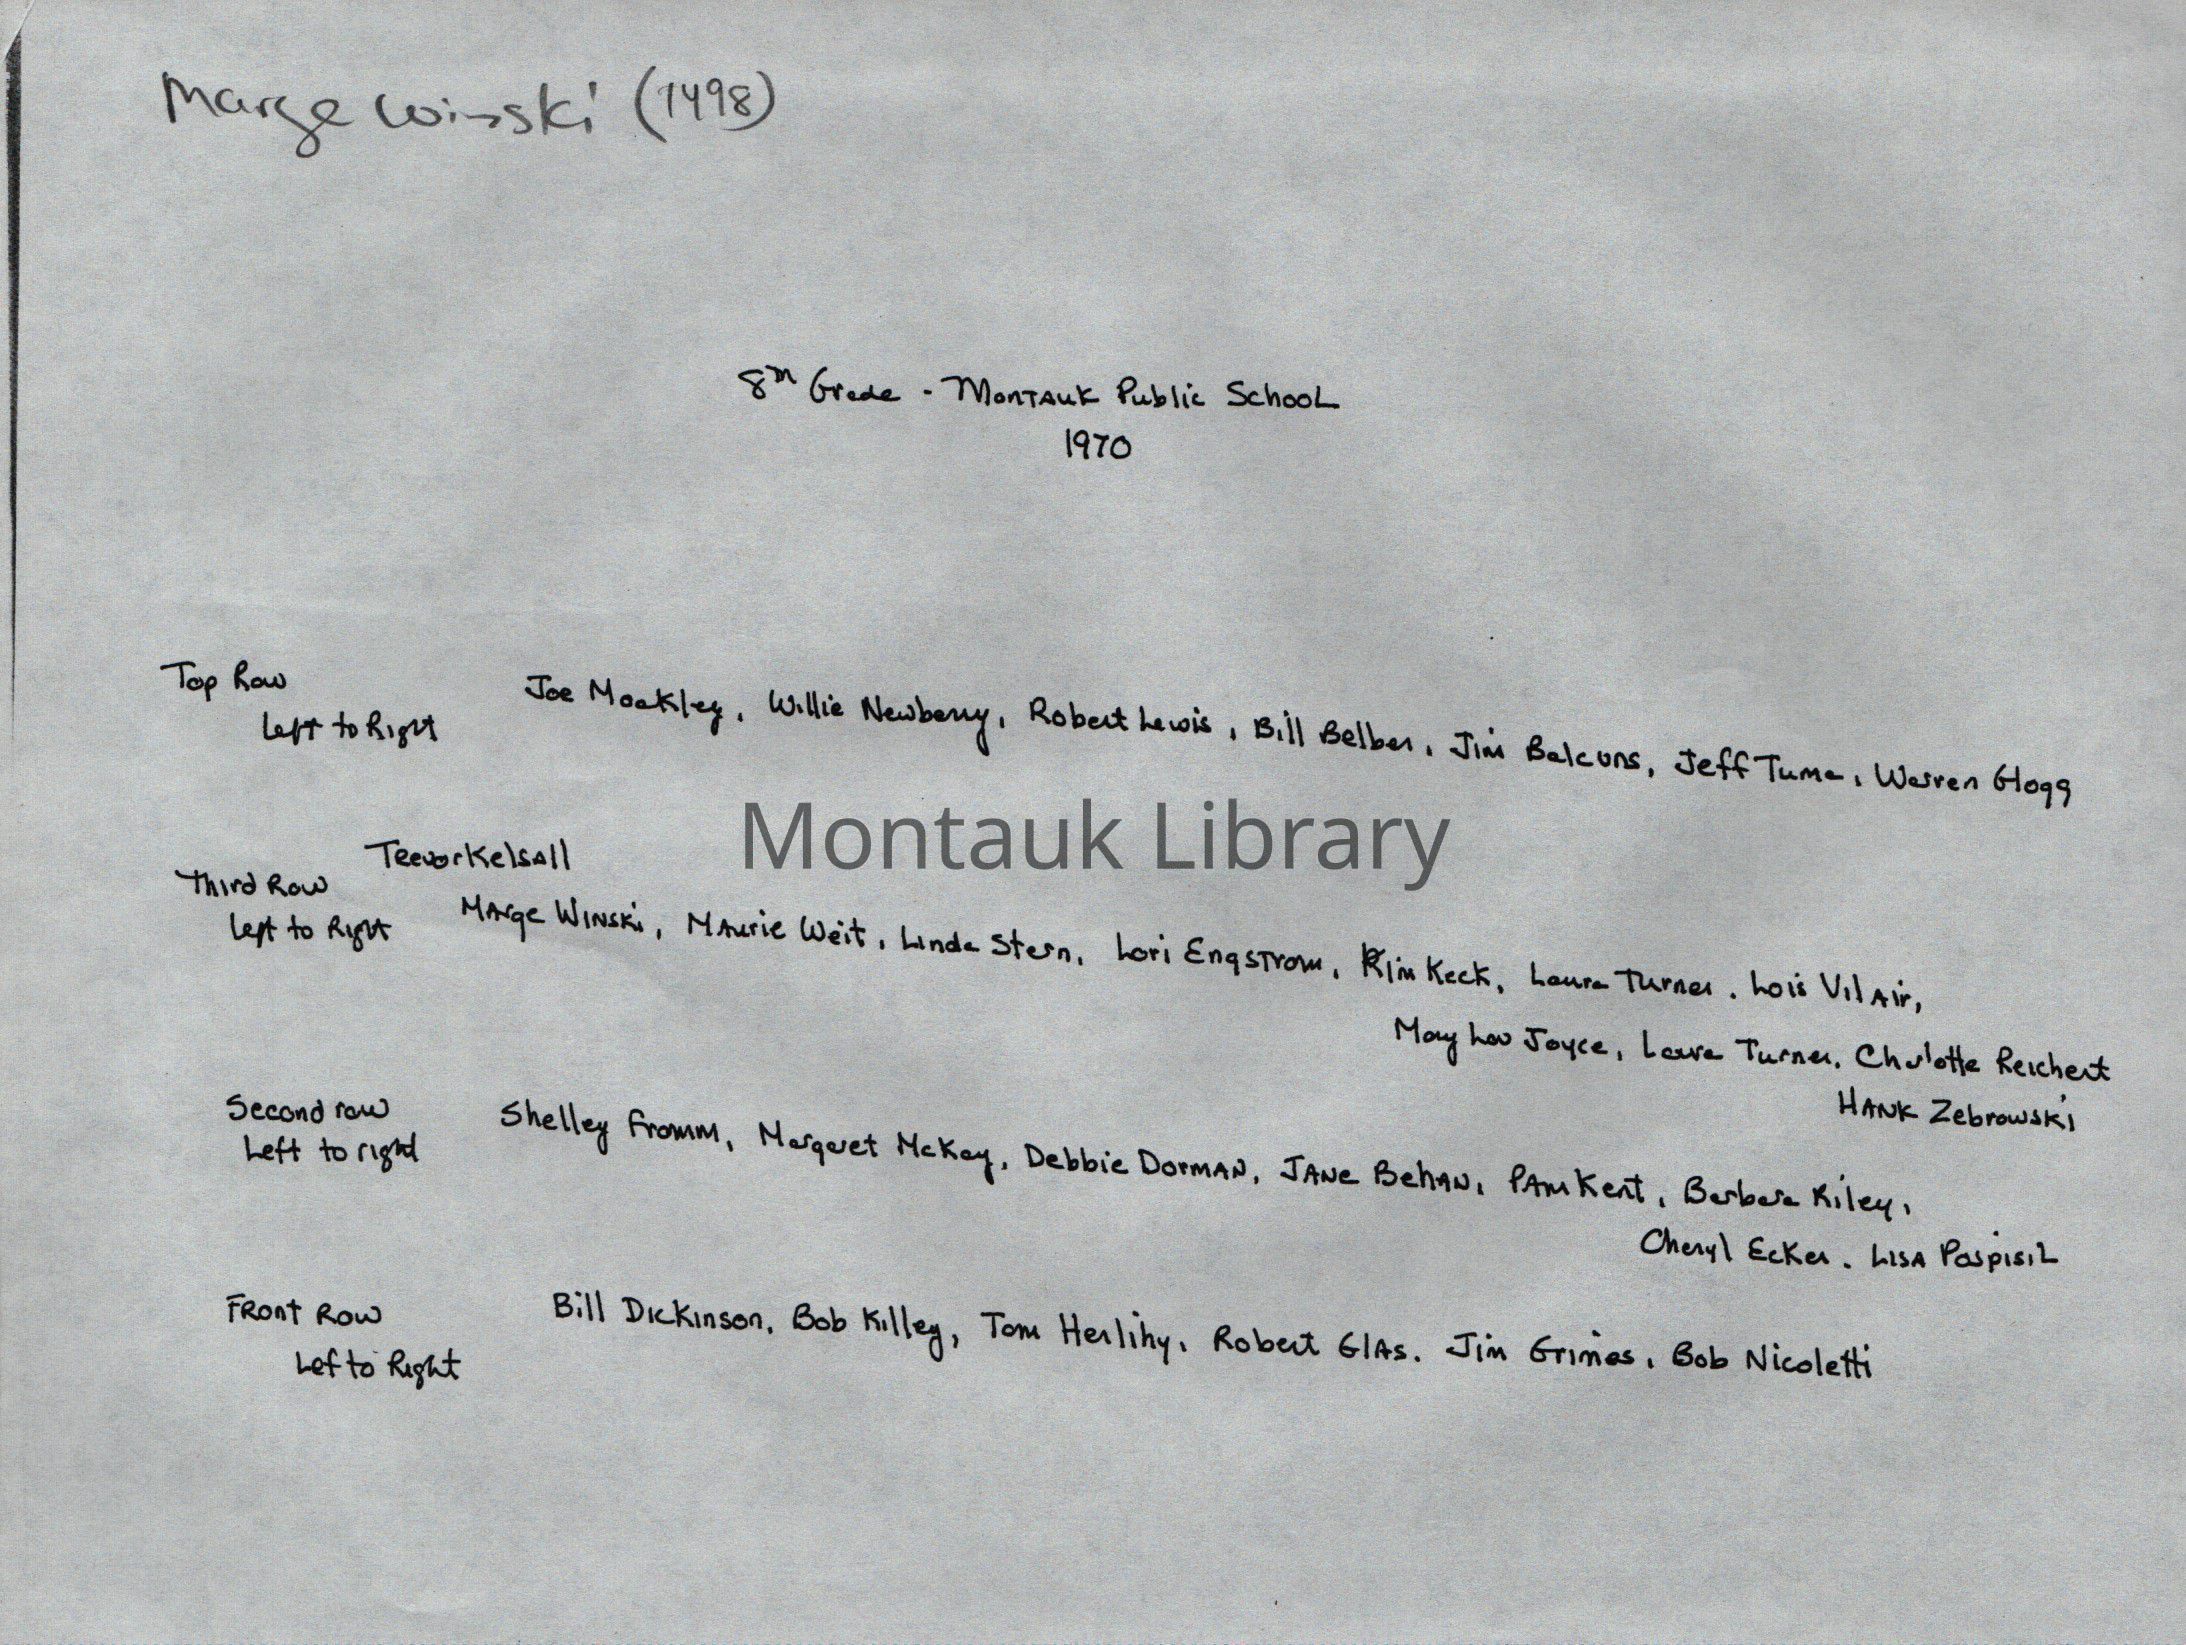 Marge Winski (1498)
8th Grade - Montauk Public School
1970
Top Row
Left to Right
Joe Moakley, Willie Newberry, Robert Lewis, Bill Belber, Jim Balcuns, Jeff Tuma, Warren Glogg
Montauk Library
Trevor Kelsall
Third Row
Left to Right
Marge Winski, Maurie Weit, Linda Stern, Lori Engstrom, Kim Keck, Laura Turner, Lois Vilair,
Mary Lou Joyce, Laura Turner, Charlotte Reichert
Hank Zebrowski
Second row
Left to right
Shelley Fromm, Margaret McKay, Debbie Dorman, Jane Behan, Pam Kent, Barbara Kiley,
Cheryl Ecker, Lisa Pospisil
Front Row
Lef to Right
Bill Dickinson, Bob Killey, Tom Herlihy, Robert Glas, Jim Grimes, Bob Nicoletti